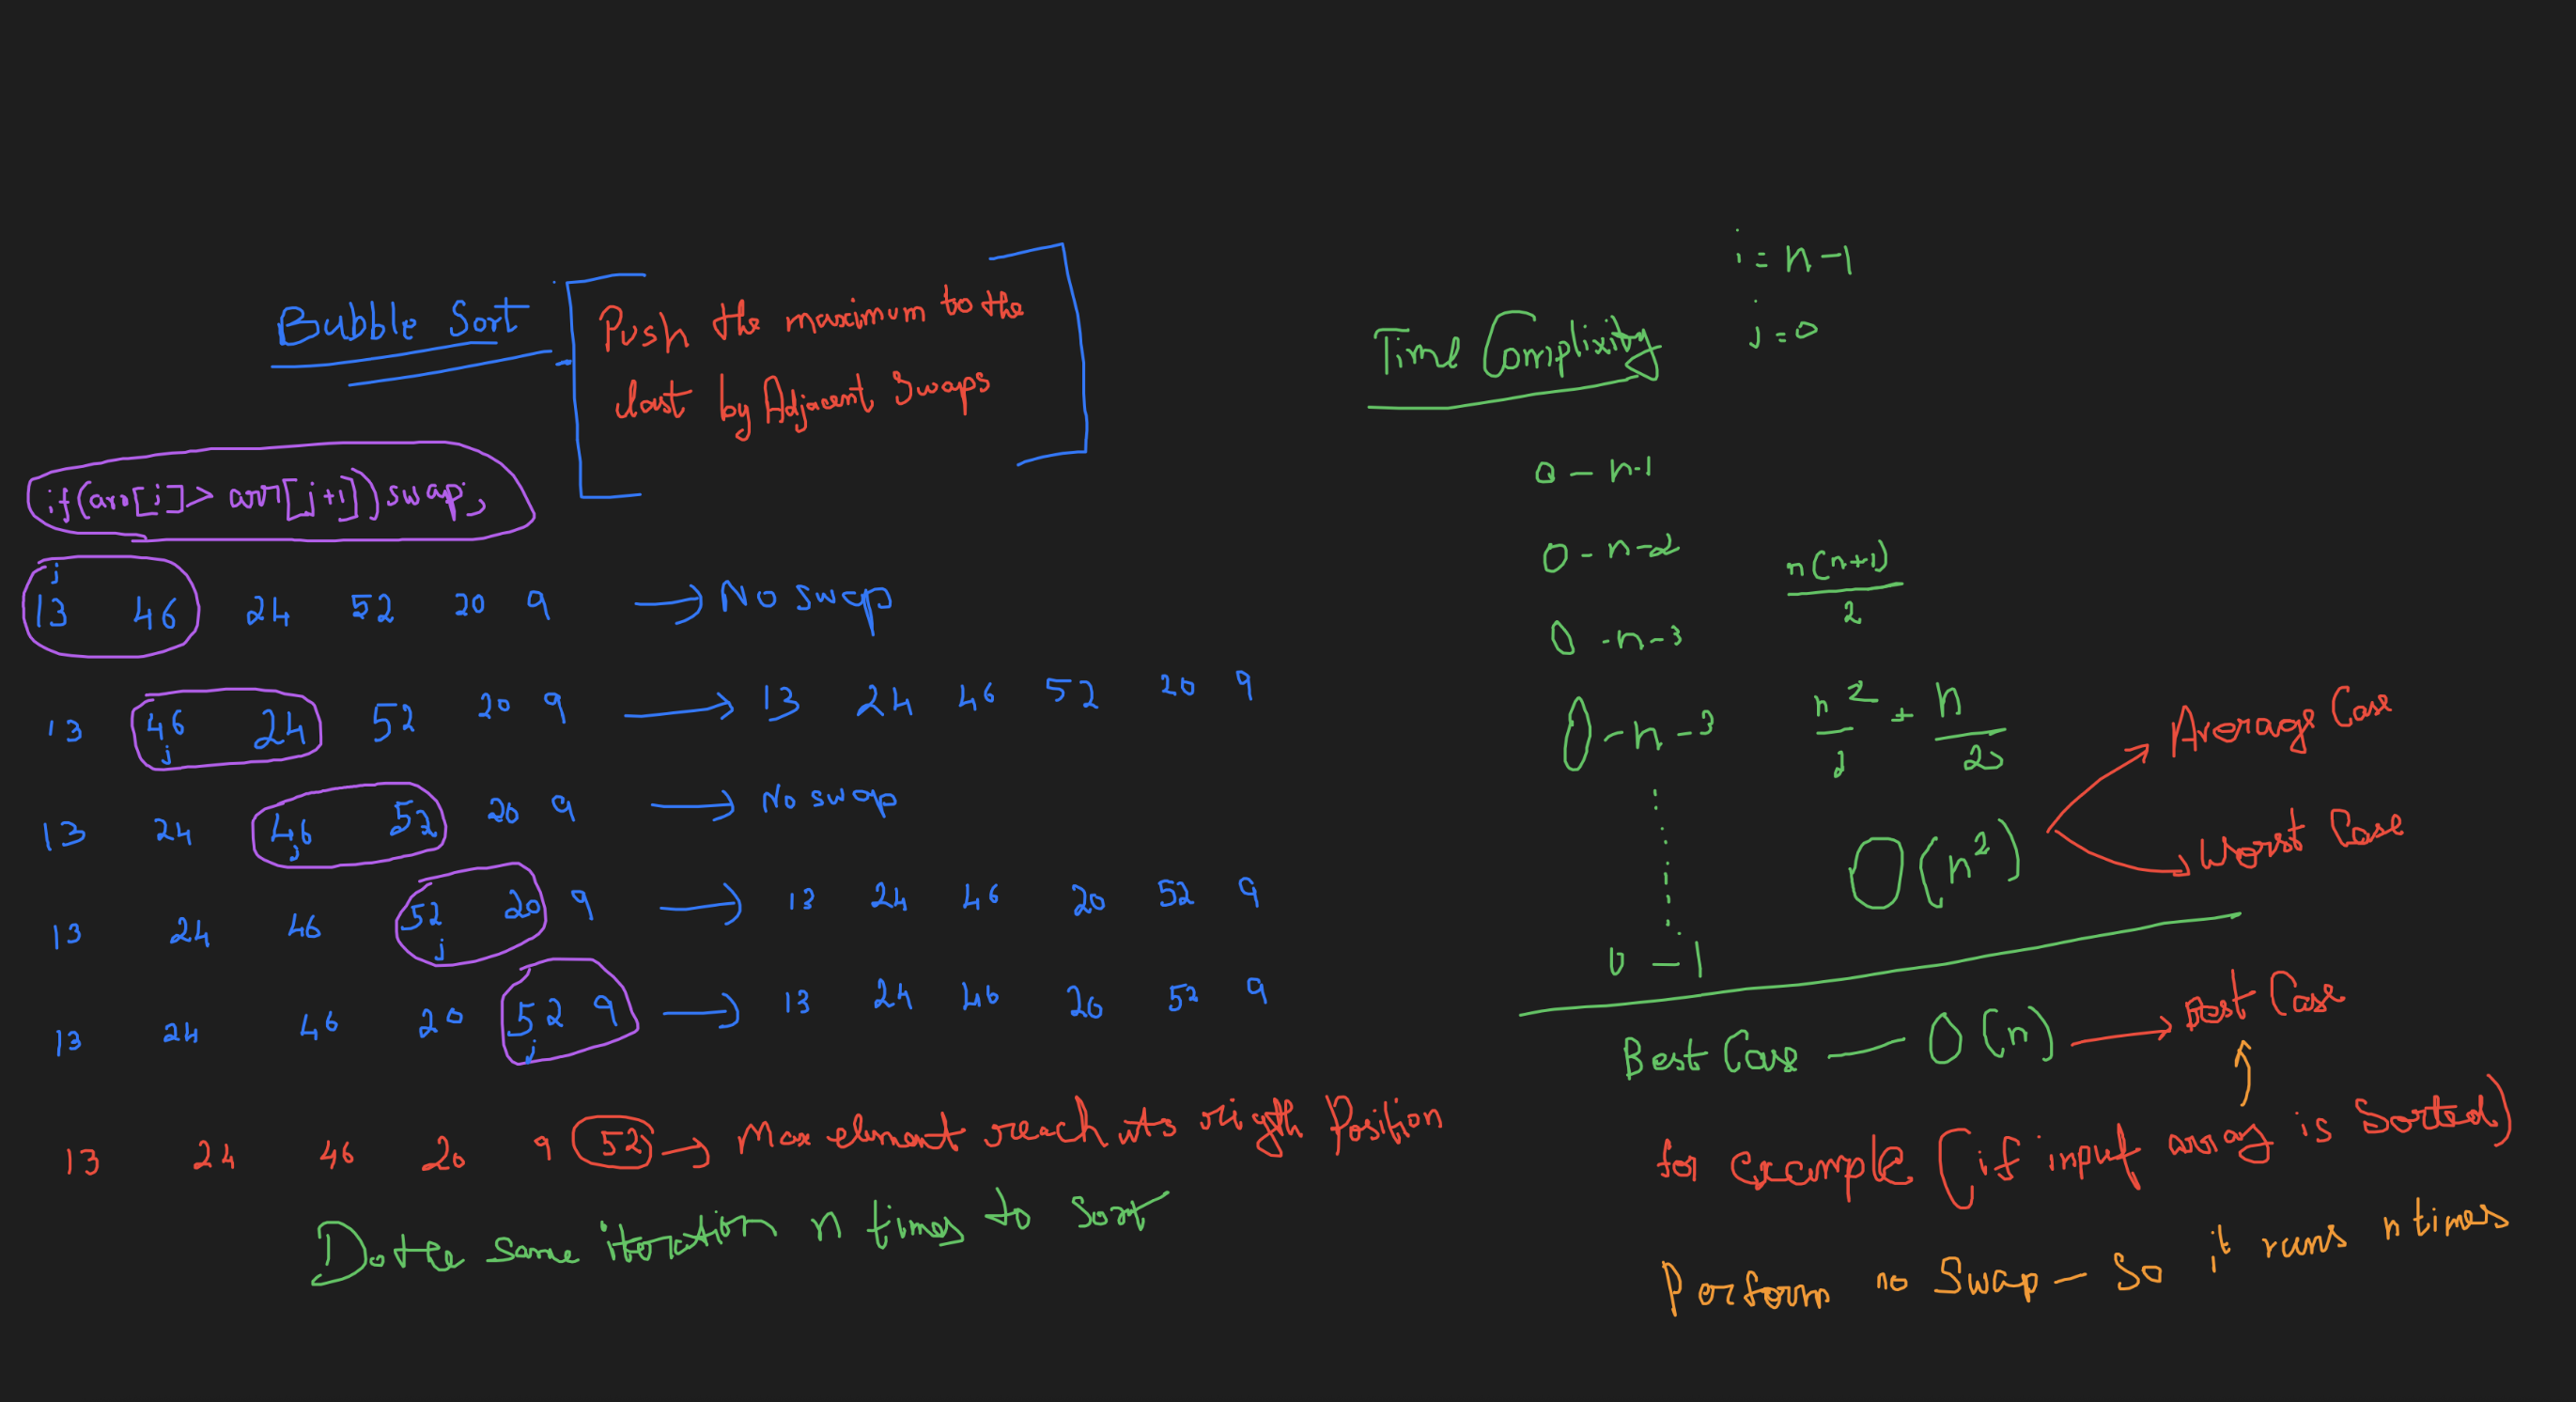 Bubble Sort
Push the maximum to the
last by Adjacent Swaps
if(arr[j]> arr[j+1])swap;
j
13 46 24 52 20 9 → No swap
13 46 24 52 20 9 → 13 24 46 52 20 9
j
13 24 46 52 20 9 → No swap
j
13 24 46 52 20 9 → 13 24 46 20 52 9
j
13 24 46 20 52 9 → 13 24 46 20 52 9
j
13 24 46 20 9 52 → Max element reach its rigth Position
Do the same iteration n times to Sort
i = n-1
j = 0
Time Complixity
0 - n-1
0 - n-2
0 - n-3
0 - n - 3
0 - 1
n(n+1)
2
n² + n
2 2
O(n²)
Average Case
Worst Case
Best Case — O(n) → Best Case
for example (if input array is Sorted)
Perform no Swap - So it runs n times